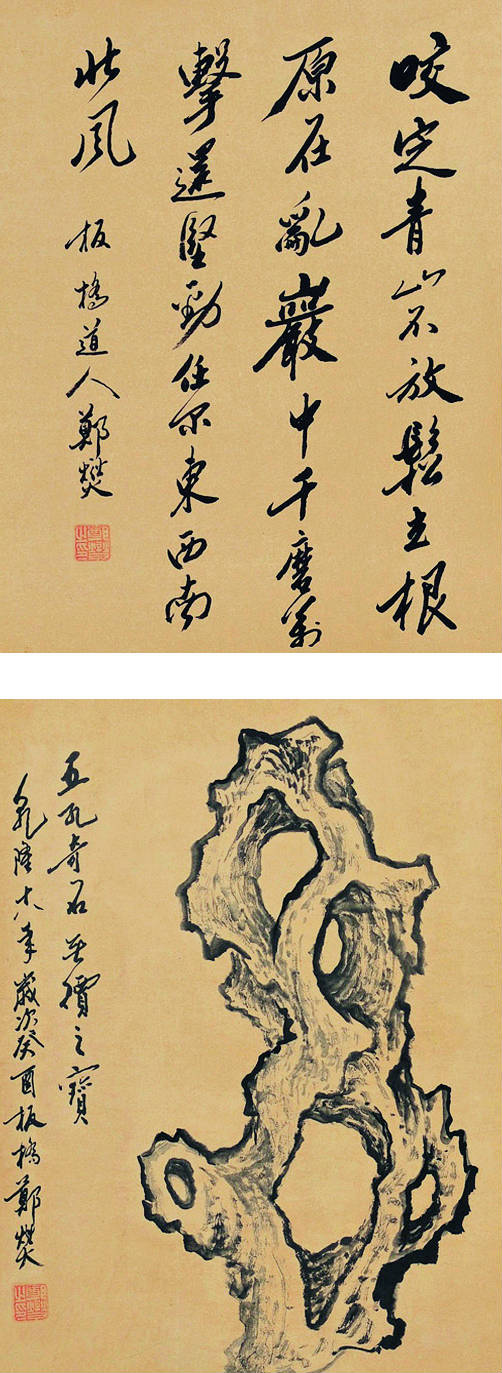 咬定青山不放鬆立根
原在亂巖中千磨萬
擊還堅勁任尔東西南
北風 板橋道人鄭燮
五孔奇石無價之寶
乾隆十八年歲次癸酉板橋鄭燮